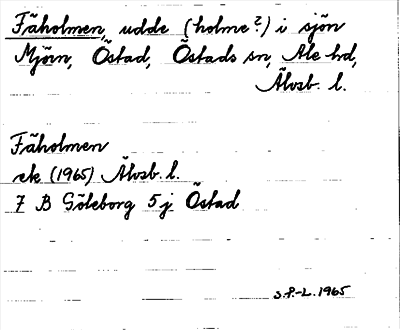 Fäholmen, udde (holme?) i sjön
Mjörn, Östad, Östads sn, Ale hd,
Älvsb. l.
Fäholmen
ek (1965) Älvsb. l.
7 B Göteborg 5 j Östad
S.P.-L. 1965